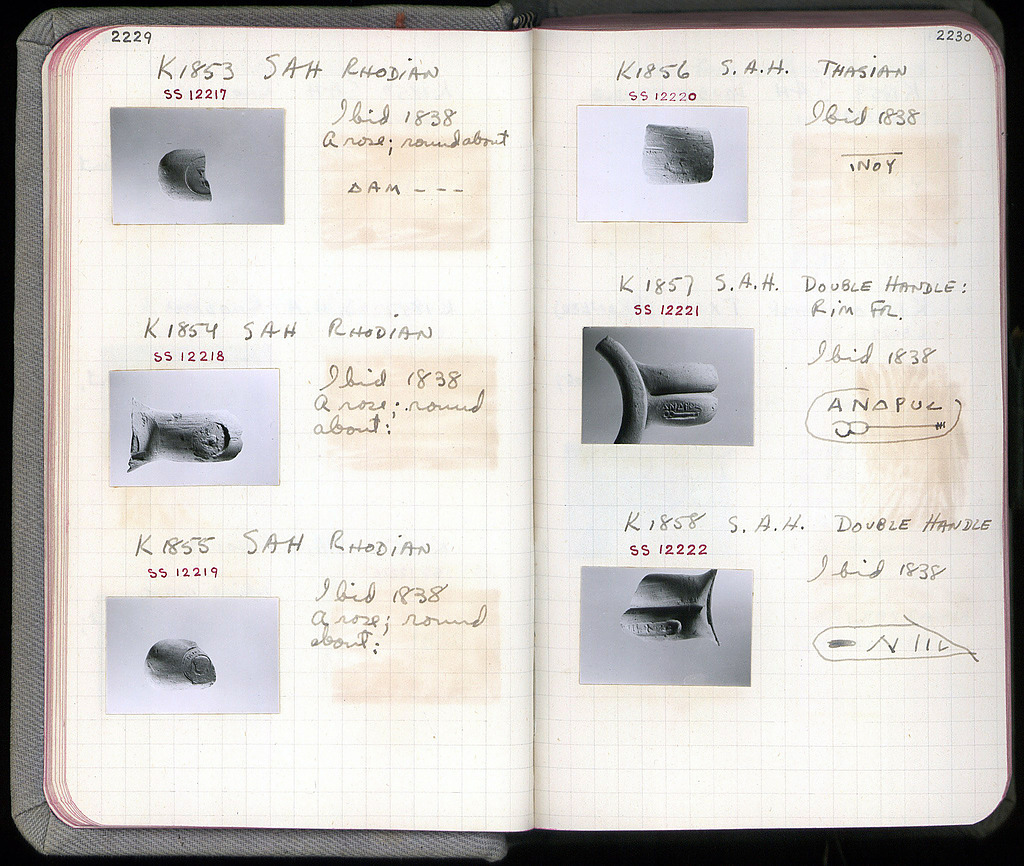 2229
K1853 SAH RHODIAN
SS 12217
Ibid 1838
A rose; round about
ΔAM - - -
K1854 SAH RHODIAN
SS 12218
Ibid 1838
A rose; round
about:
K1855 SAH RHODIAN
SS 12219
Ibid 1838
A rose; round
about:
2230
K1856 S.A.H. THASIAN
SS 12220
Ibid 1838
ΙΝΟΥ
K1857 S.A.H. DOUBLE HANDLE:
RIM FR.
SS 12221
Ibid 1838
ANΔPUL
K1858 S.A.H. DOUBLE HANDLE
SS 12222
Ibid 1838